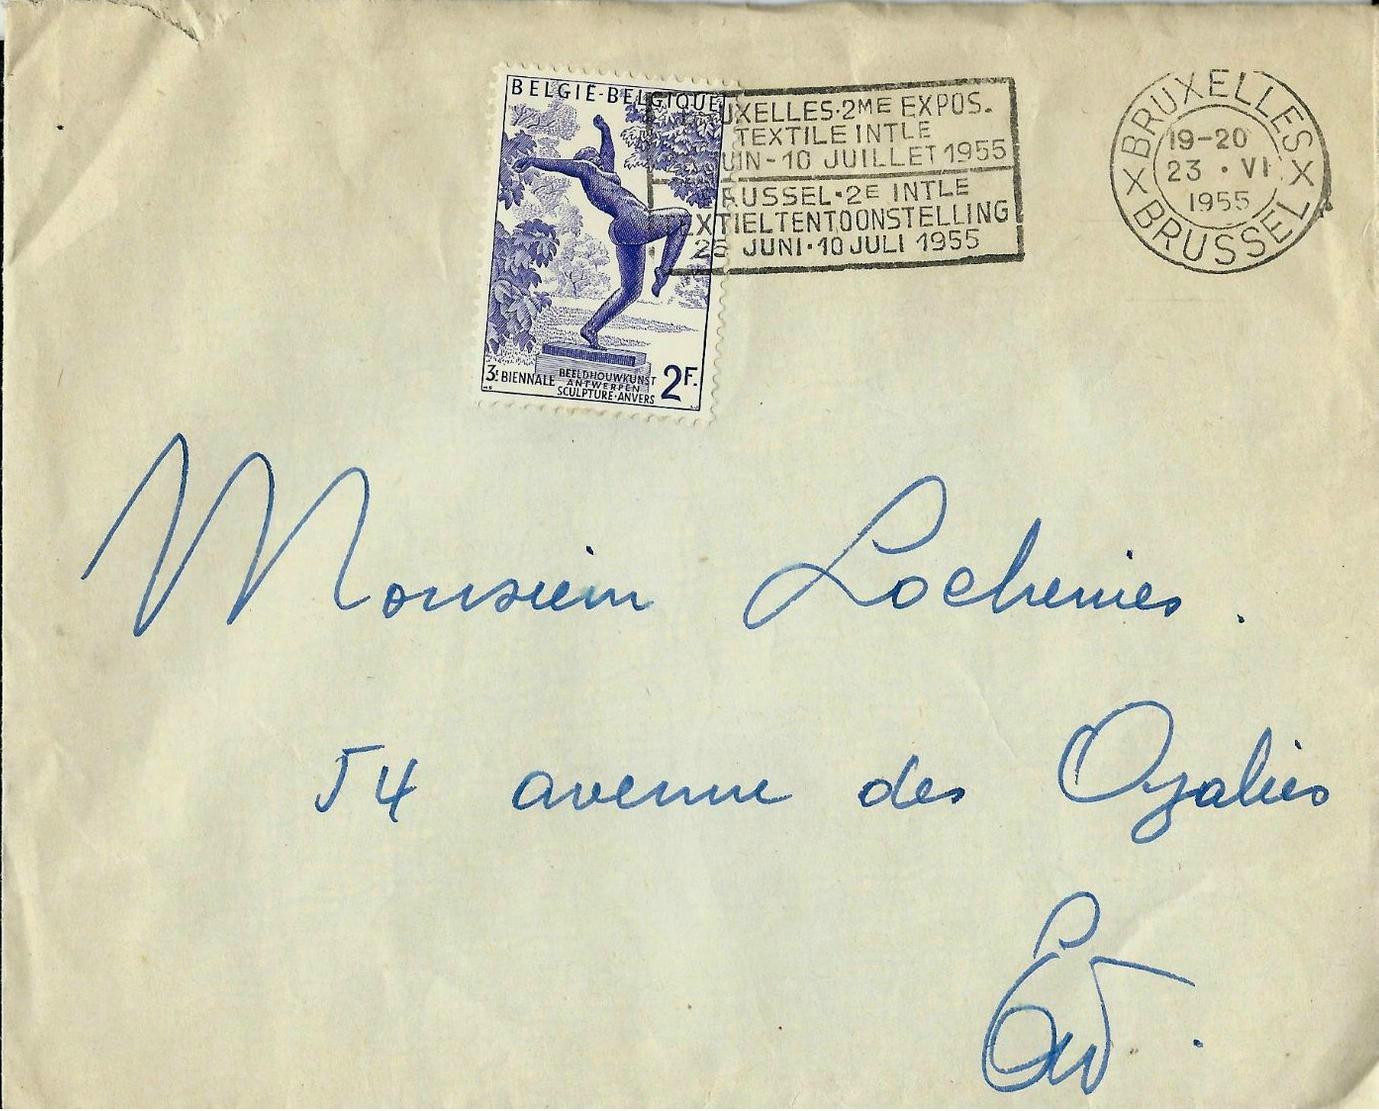 BELGIË-BELGIQUE
UXELLES·2ME EXPOS.
TEXTILE INTLE
UIN-10 JUILLET 1955
RUSSEL·2E INTLE
EXTIELTENTOONSTELLING
25 JUNI·10 JULI 1955
BRUXELLES
19-20
23 · VI
1955
X BRUSSEL X
3e BIENNALE
BEELDHOUWKUNST
ANTWERPEN
SCULPTURE·ANVERS
2F.
Monsieur
54 avenue des Azalées